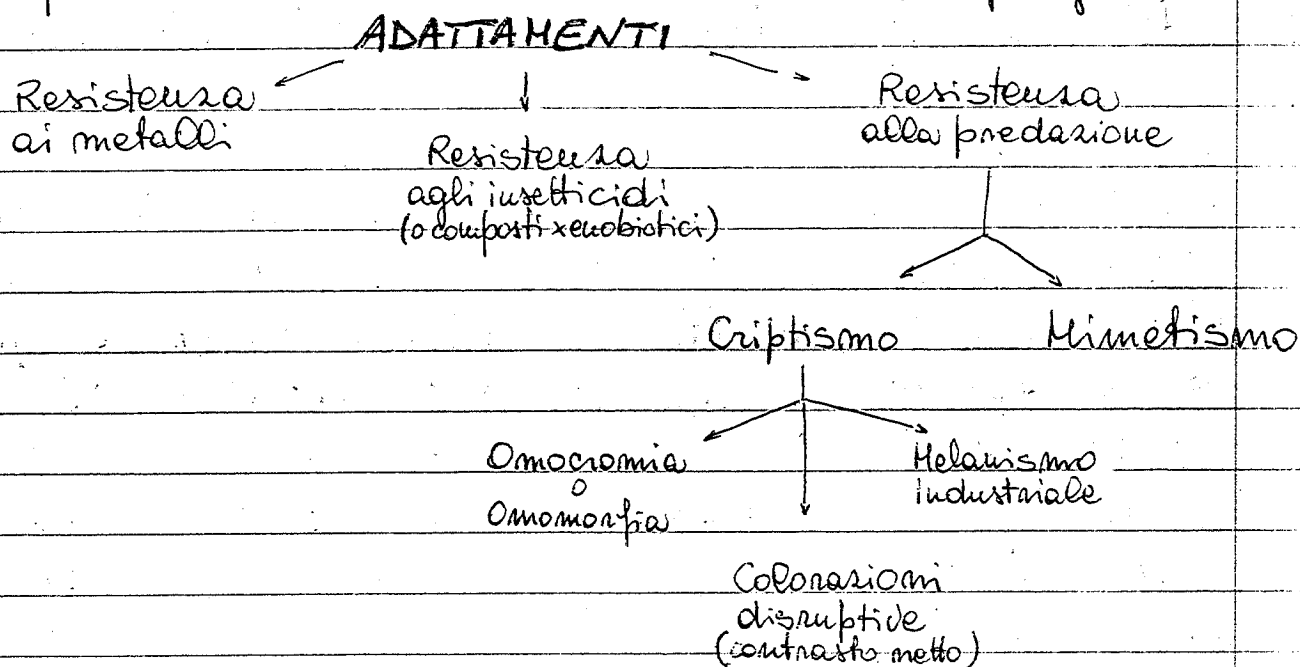 ADATTAMENTI
Resistenza
ai metalli
Resistenza
agli insetticidi
(o composti xenobiotici)
Resistenza
alla predazione
Criptismo
Mimetismo
Omocromia
o
Omomorfia
Melanismo
industriale
Colorazioni
disruptive
(contrasto netto)